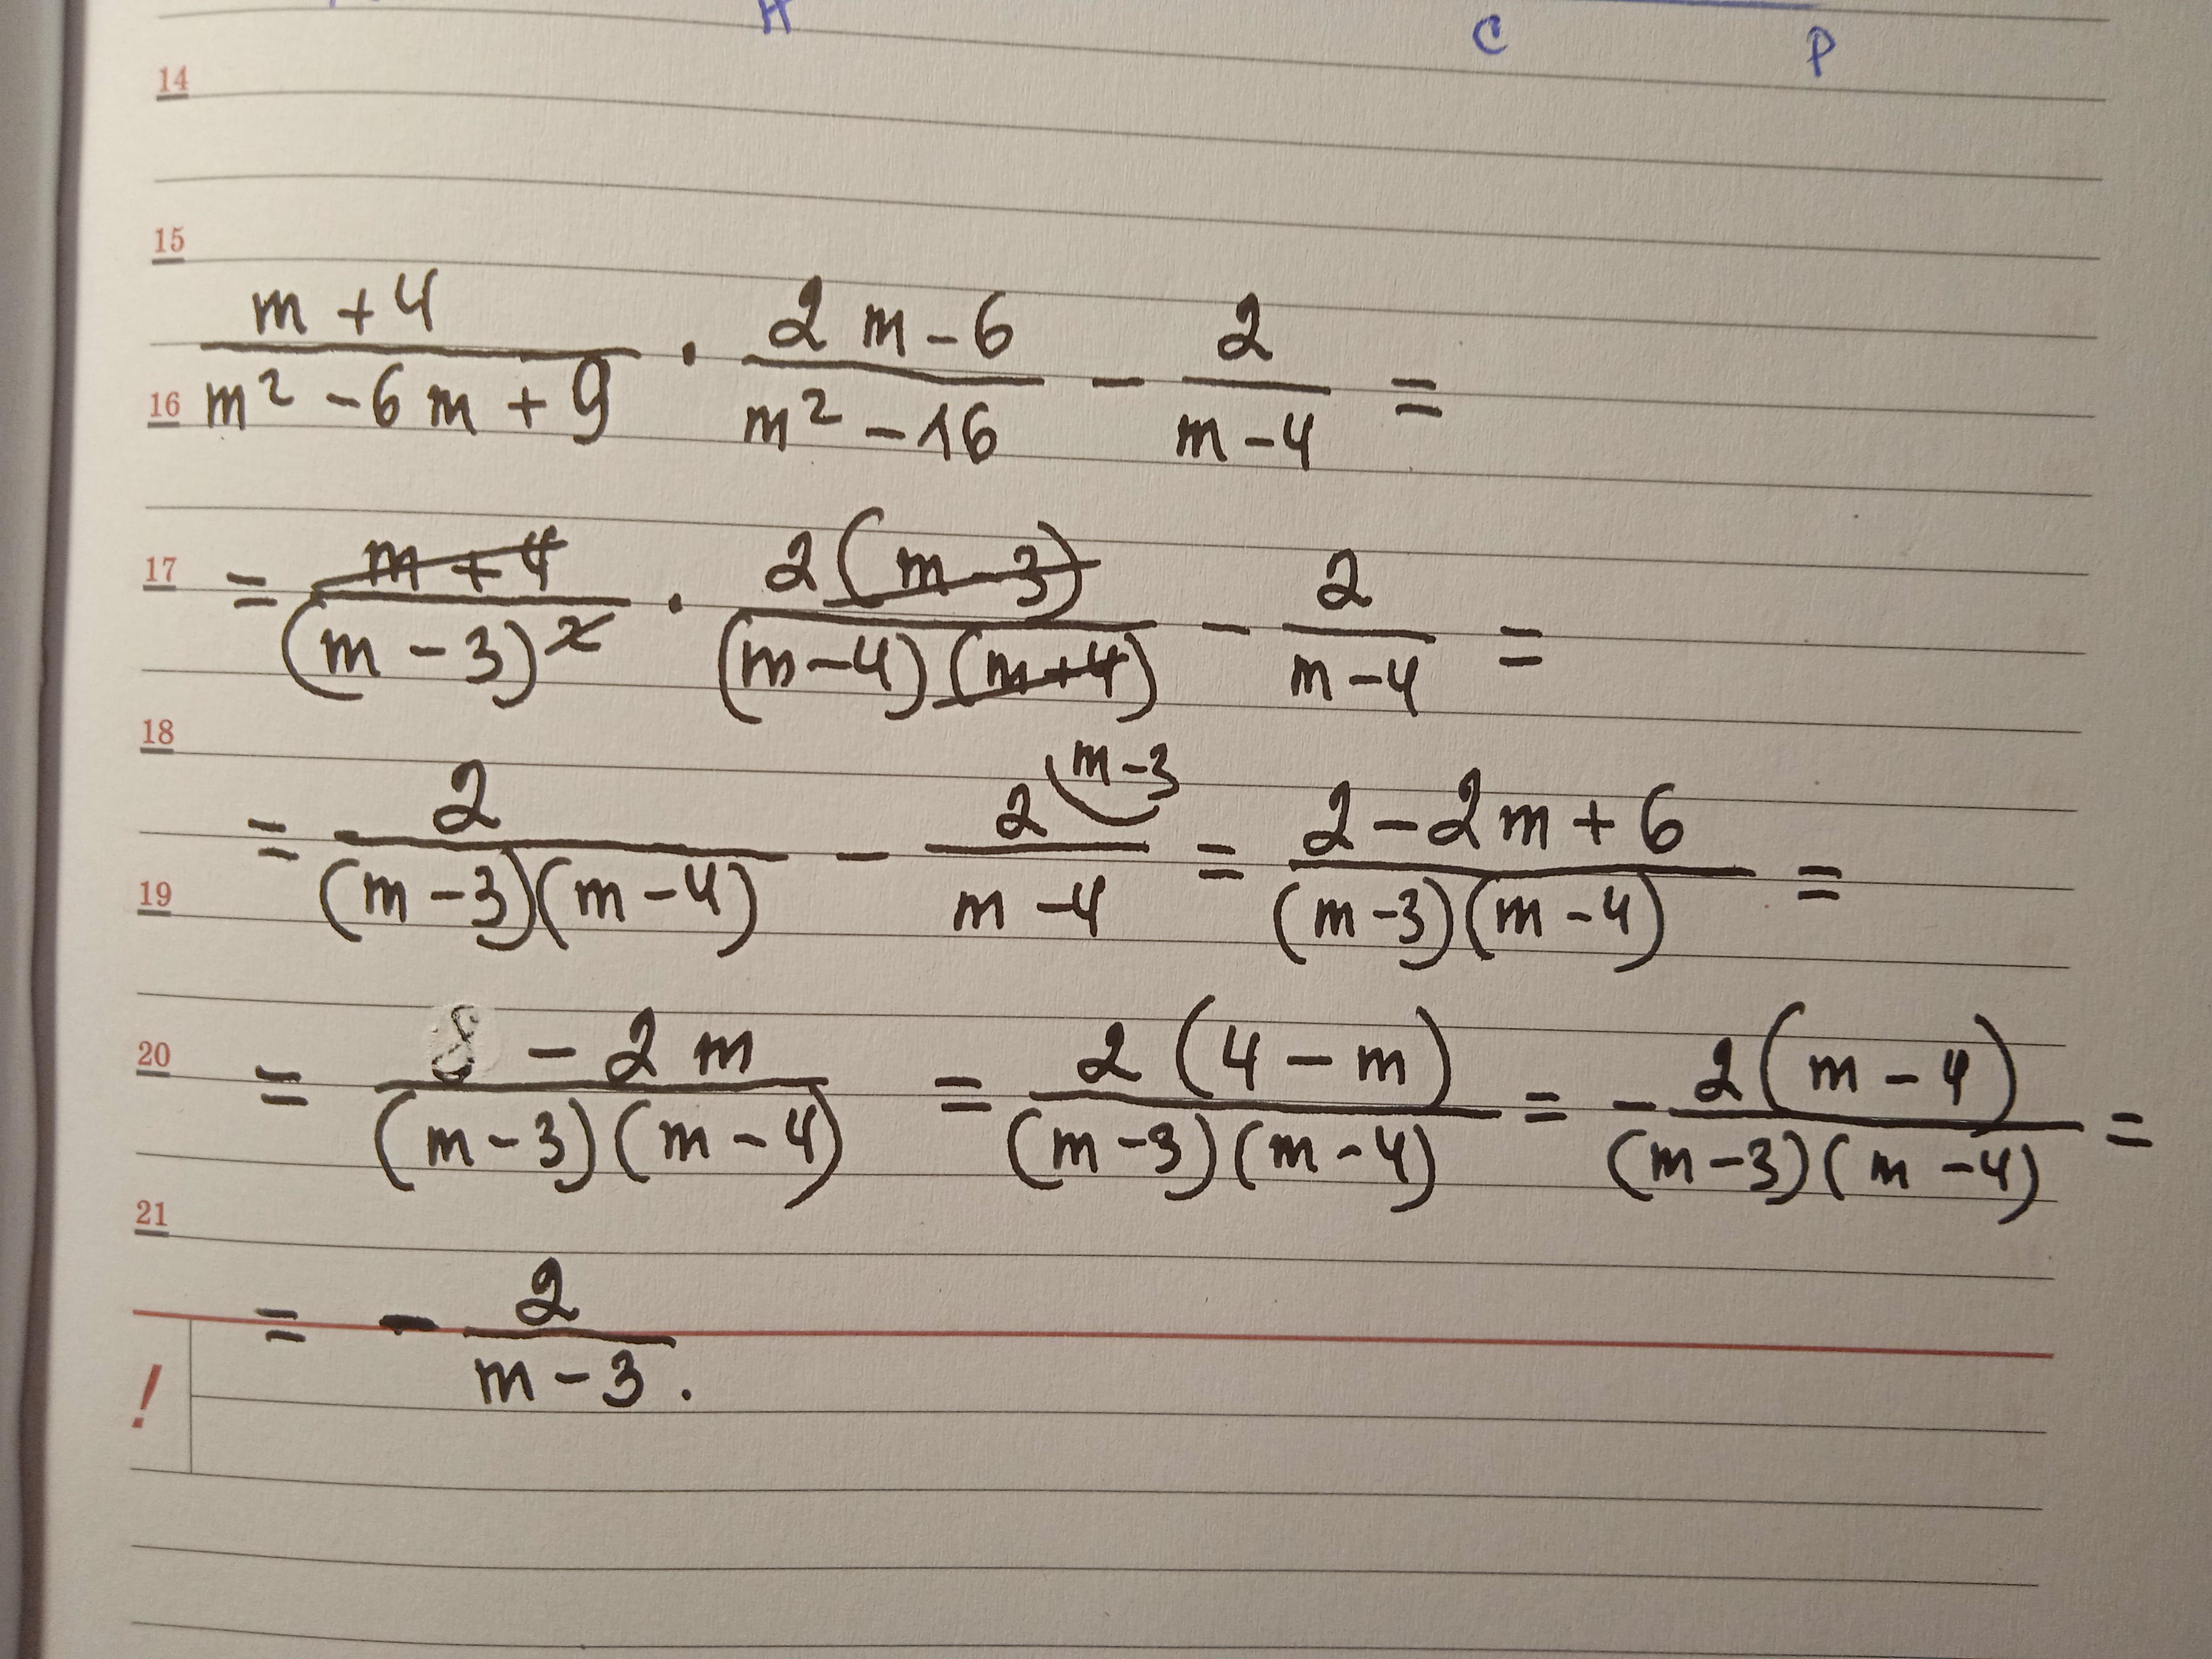 C P
14
15
(m + 4)/(m² - 6m + 9) · (2m - 6)/(m² - 16) - 2/(m - 4) =
16
17
= (m + 4)/(m - 3)² · 2(m - 3)/((m - 4)(m + 4)) - 2/(m - 4) =
18
= 2/((m - 3)(m - 4)) - 2/(m - 4) (m - 3 = (2 - 2m + 6)/((m - 3)(m - 4)) =
19
20
= (8 - 2m)/((m - 3)(m - 4)) = 2(4 - m)/((m - 3)(m - 4)) = - 2(m - 4)/((m - 3)(m - 4)) =
21
= - 2/(m - 3).
!